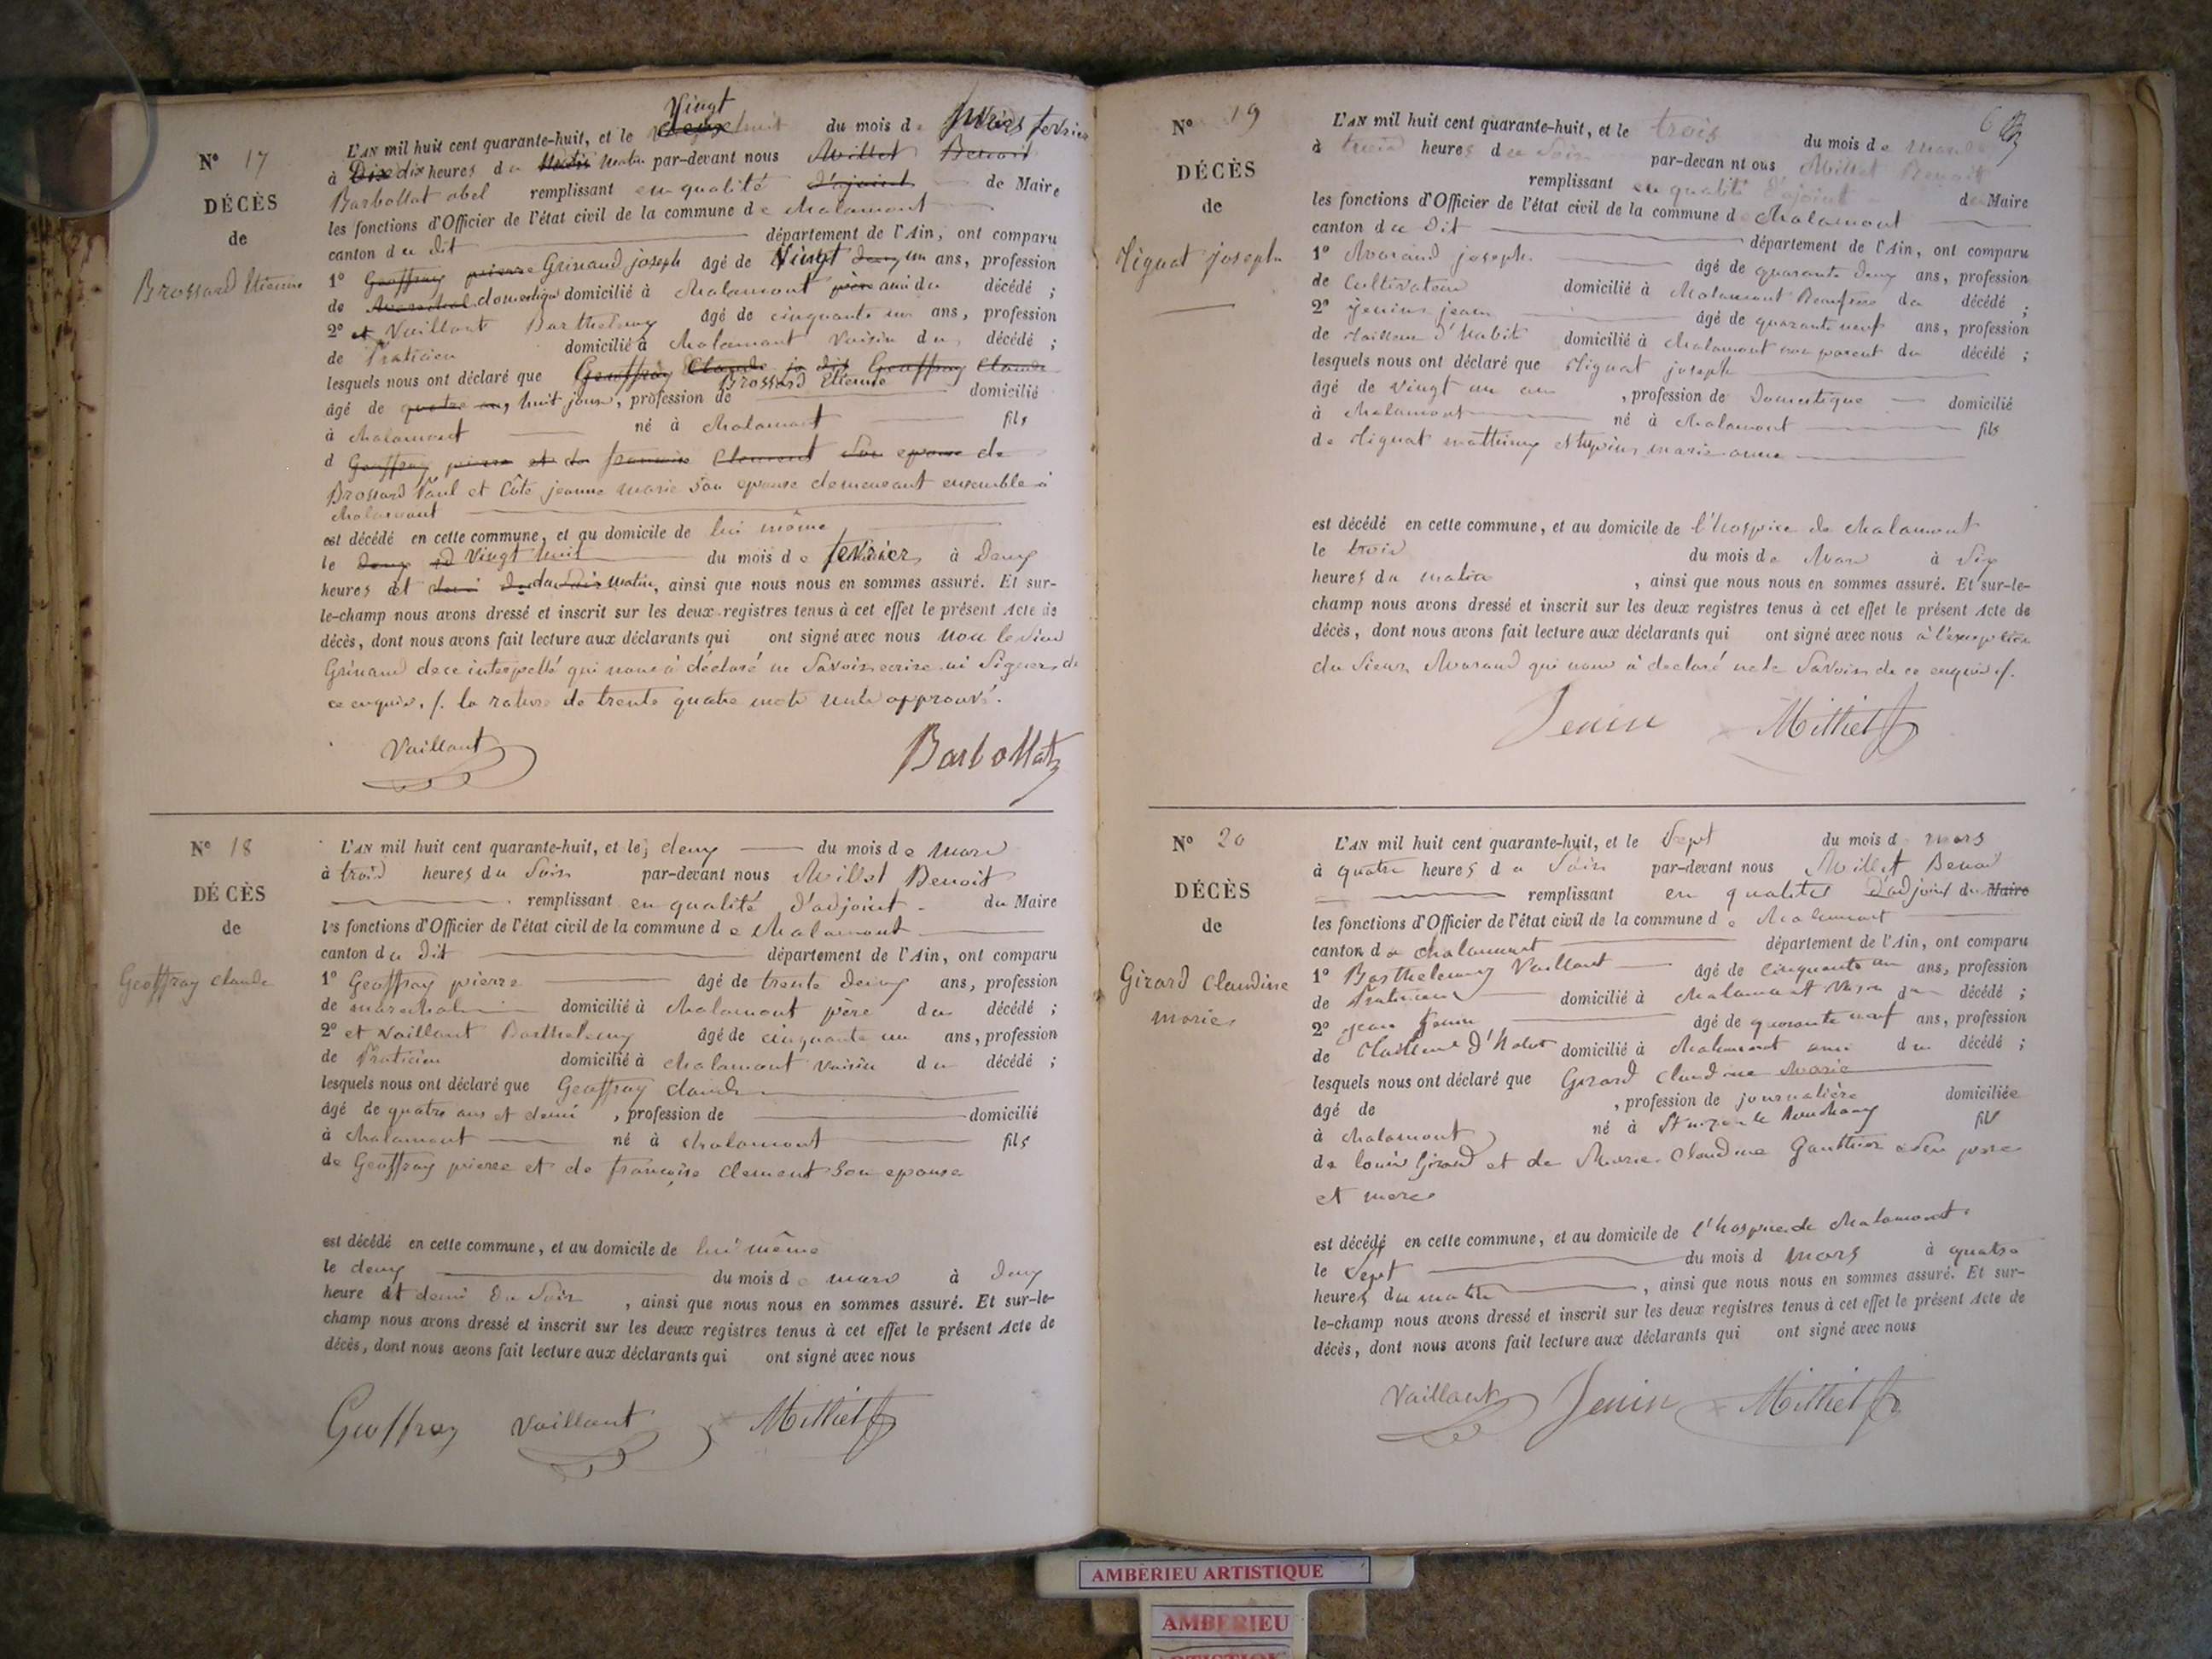 Vingt
N° 17
L'AN mil huit cent quarante-huit, et le huit du mois de février
à dix heures du matin par-devant nous Millet Benoit
DÉCÈS
Barbollat abel remplissant en qualité d'ajoint de Maire
de
les fonctions d'Officier de l'état civil de la commune de chalamont
Brossard Etienne
canton du dit département de l'Ain, ont comparu
1° Geoffray pierre Grinand joseph âgé de Vingt un ans, profession
de marechal domestique domicilié à chalamont père ami du décédé ;
2° et Vaillant Barthelemy âgé de cinquante un ans, profession
de Praticien domicilié à chalamont Voisin du décédé ;
lesquels nous ont déclaré que Geoffray Claude je dit Geoffray Claude
Brossard Etienne
âgé de quatre ans, huit jours, profession de domicilié
à chalamont né à chalamont fils
d Geoffray pierre et de francoise Clement Son epouse de
Brossard Paul et Côte jeanne marie son epouse demeurant ensemble à
chalamont
est décédé en cette commune, et au domicile de lui même
le deux Vingt huit du mois de fevrier à deux
heures et demi du matin, ainsi que nous nous en sommes assuré. Et sur-
le-champ nous avons dressé et inscrit sur les deux registres tenus à cet effet le présent Acte de
décès, dont nous avons fait lecture aux déclarants qui ont signé avec nous non le sieur
Grinand de ce interpellé qui nous à déclaré ne Savoir ecrire ni Signer de
ce enquis ./. la rature de trente quatre mots nuls approuvé.
Vaillant Barbollat
N° 18
L'AN mil huit cent quarante-huit, et le deux du mois de mars
à trois heures du Soir par-devant nous Millet Benoit
DÉCÈS
remplissant en qualité d'adjoint du Maire
de
les fonctions d'Officier de l'état civil de la commune de chalamont
Geoffray claude
canton du dit département de l'Ain, ont comparu
1° Geoffray pierre âgé de trente deux ans, profession
de marechal domicilié à chalamont père du décédé ;
2° et Vaillant Barthelemy âgé de cinquante un ans, profession
de Praticien domicilié à chalamont voisin du décédé ;
lesquels nous ont déclaré que Geoffray claude
âgé de quatre ans et demi , profession de domicilié
à chalamont né à chalamont fils
de Geoffray pierre et de françoise Clement Son epouse
est décédé en cette commune, et au domicile de lui même
le deux du mois de mars à deux
heure et demi du Soir , ainsi que nous nous en sommes assuré. Et sur-le-
champ nous avons dressé et inscrit sur les deux registres tenus à cet effet le présent Acte de
décès, dont nous avons fait lecture aux déclarants qui ont signé avec nous
Geoffray Vaillant Milliet
6
N° 19
L'AN mil huit cent quarante-huit, et le trois du mois de mars
à trois heures du Soir par-devan nt ous Millet Benoit
DÉCÈS
remplissant en qualité d'ajoint du Maire
de
les fonctions d'Officier de l'état civil de la commune de chalamont
canton du dit département de l'Ain, ont comparu
Mignat joseph
1° Morand joseph âgé de quarante deux ans, profession
de Cultivateur domicilié à chalamont Beaufrere du décédé ;
2° Jenin jean âgé de quarante neuf ans, profession
de tailleur d'habit domicilié à chalamont non parent du décédé ;
lesquels nous ont déclaré que Mignat joseph
âgé de vingt un ans , profession de Domestique domicilié
à chalamont né à chalamont fils
de Mignat marie anne
est décédé en cette commune, et au domicile de l'hospice de chalamont
le trois du mois de Mars à Six
heures du matin , ainsi que nous nous en sommes assuré. Et sur-le-
champ nous avons dressé et inscrit sur les deux registres tenus à cet effet le présent Acte de
décès, dont nous avons fait lecture aux déclarants qui ont signé avec nous à l'exception
du Sieur Morand qui nous à declaré ne le Savoir de ce enquis ./.
Jenin Milliet
N° 20
L'AN mil huit cent quarante-huit, et le Sept du mois d mars
à quatre heures du Soir par-devant nous Millet Benoit
DÉCÈS
remplissant en qualités d'adjoint du Maire
de
les fonctions d'Officier de l'état civil de la commune de chalamont
Girard Claudine
marie
canton de chalamont département de l'Ain, ont comparu
1° Barthelemy Vaillant âgé de cinquante un ans, profession
de Praticien domicilié à chalamont voisin du décédé ;
2° jean Jenin âgé de quarante neuf ans, profession
de tailleur d'habit domicilié à chalamont ami du décédé ;
lesquels nous ont déclaré que Girard Claudine Marie
âgé de , profession de journalière domiciliée
à chalamont né à St nizier le fil
de louis Girard et de Marie Claudine Gauthier père
et mere
est décédé en cette commune, et au domicile de l'hospice de chalamont
le Sept du mois d mars à quatre
heures du matin , ainsi que nous nous en sommes assuré. Et sur-
le-champ nous avons dressé et inscrit sur les deux registres tenus à cet effet le présent Acte de
décès, dont nous avons fait lecture aux déclarants qui ont signé avec nous
Vaillant Jenin Milliet
AMBERIEU ARTISTIQUE
AMBERIEU
ARTISTIQUE